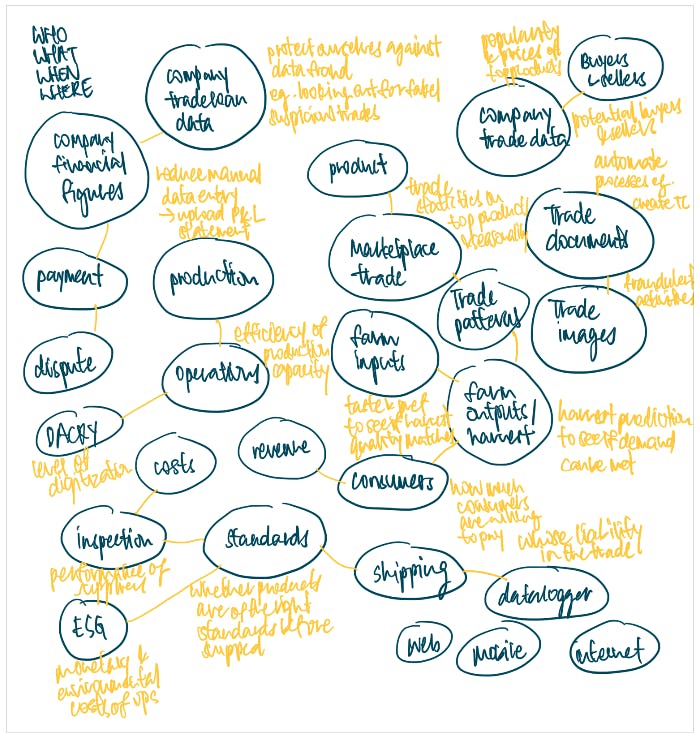 WHO
WHAT
WHEN
WHERE
company
trade loan
data
protect ourselves against
data fraud
eg. looking out for fake/
suspicious trades
popularity
& prices of
top products
Buyers
& sellers
company
trade data
potential buyers
& sellers
company
financial
figures
reduce manual
data entry
→ upload P&L
statement
product
trade
statistics on
top product/
seasonality
automate
processes eg.
create TC
Trade
documents
Marketplace
trade
payment
production
Trade
patterns
fraudulent
activities
Trade
images
dispute
operations
efficiency of
production
capacity
farm
inputs
farm
outputs/
harvest
taste & pref
to see if harvest
quality matches
harvest prediction
to see if demand
can be met
level of
digitization
costs
revenue
consumers
how much
consumers
are willing
to pay
inspection
standards
whose liability
in the trade
shipping
datalogger
performance of
supplier
whether products
are of the right
standards before
shipped
ESG
monetary &
environmental
costs of
web
mobile
internet